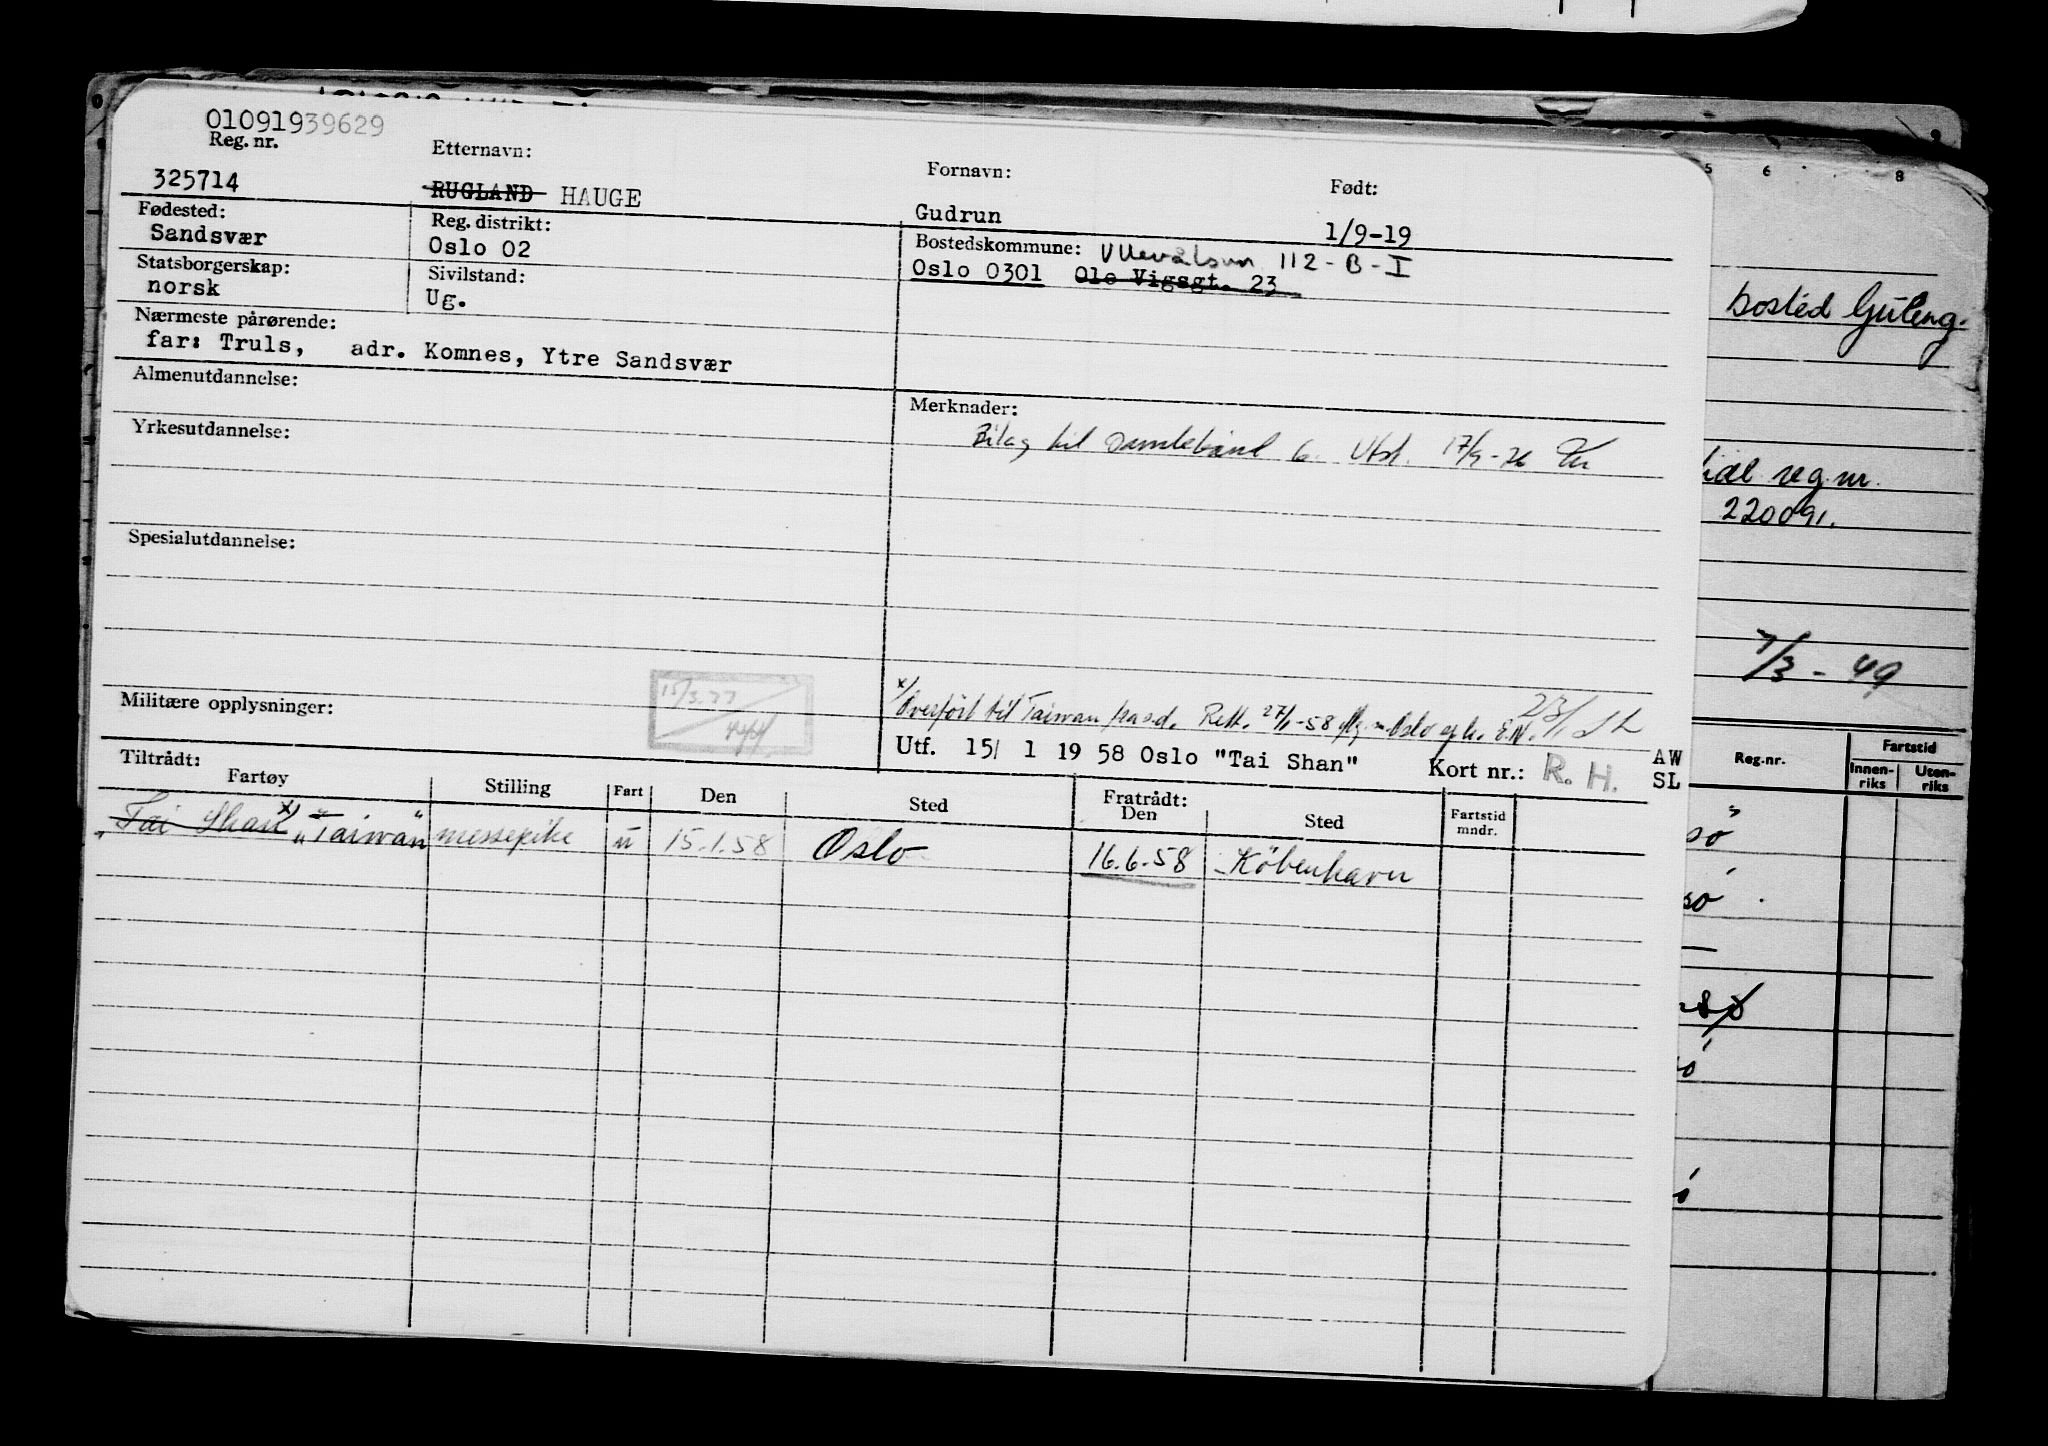 01091939629
Reg. nr.
Etternavn:
Fornavn:
Født:
325714
RUGLAND HAUGE
Gudrun
1/9-19
Fødested:
Sandsvær
Reg. distrikt:
Oslo 02
Bostedskommune: Ullevålsvn 112 - B - I
Oslo 0301 Ole Vigsgt. 23
Statsborgerskap:
norsk
Sivilstand:
Ug.
Nærmeste pårørende:
far: Truls, adr. Komnes, Ytre Sandsvær
Almenutdannelse:
Merknader:
Bilag til 6. Utst. 17/9-76
Yrkesutdannelse:
Spesialutdannelse:
15/3.77
Militære opplysninger:
x/ Overført til Taiwan fra s.d. Rett. 27/1-58 Oslo E.N. 23/1
Utf. 15/ 1 19 58 Oslo "Tai Shan"
Kort nr.: R. H.
AW
SL
Tiltrådt:
Fartøy
Stilling
Fart
Den
Sted
Fratrådt:
Den
Sted
Fartstid
mndr.
"Tai Shan x/ "Taiwan" messepike u 15.1.58 Oslo 16.6.58 København
5 6 8
bosted Guleng.
reg. nr.
220091.
7/3 - 49
Reg.nr.
Fartstid
Innen-
riks
Uten-
riks
sø
sø